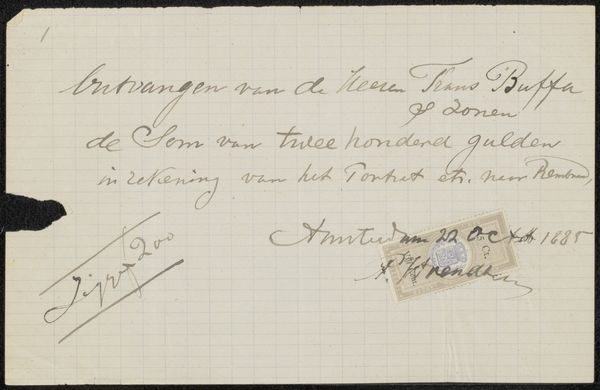 1
Ontvangen van de Heeren Frans Buffa
& Zonen
de Som van twee honderd gulden
in rekening van het Portret etz. naar Rembrand,
Amsterdam 22 Oct 1885
Zegge 200
5 Ct.